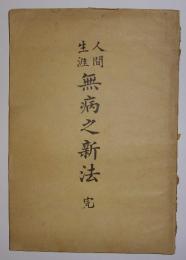 人間
生涯
無病之新法 完